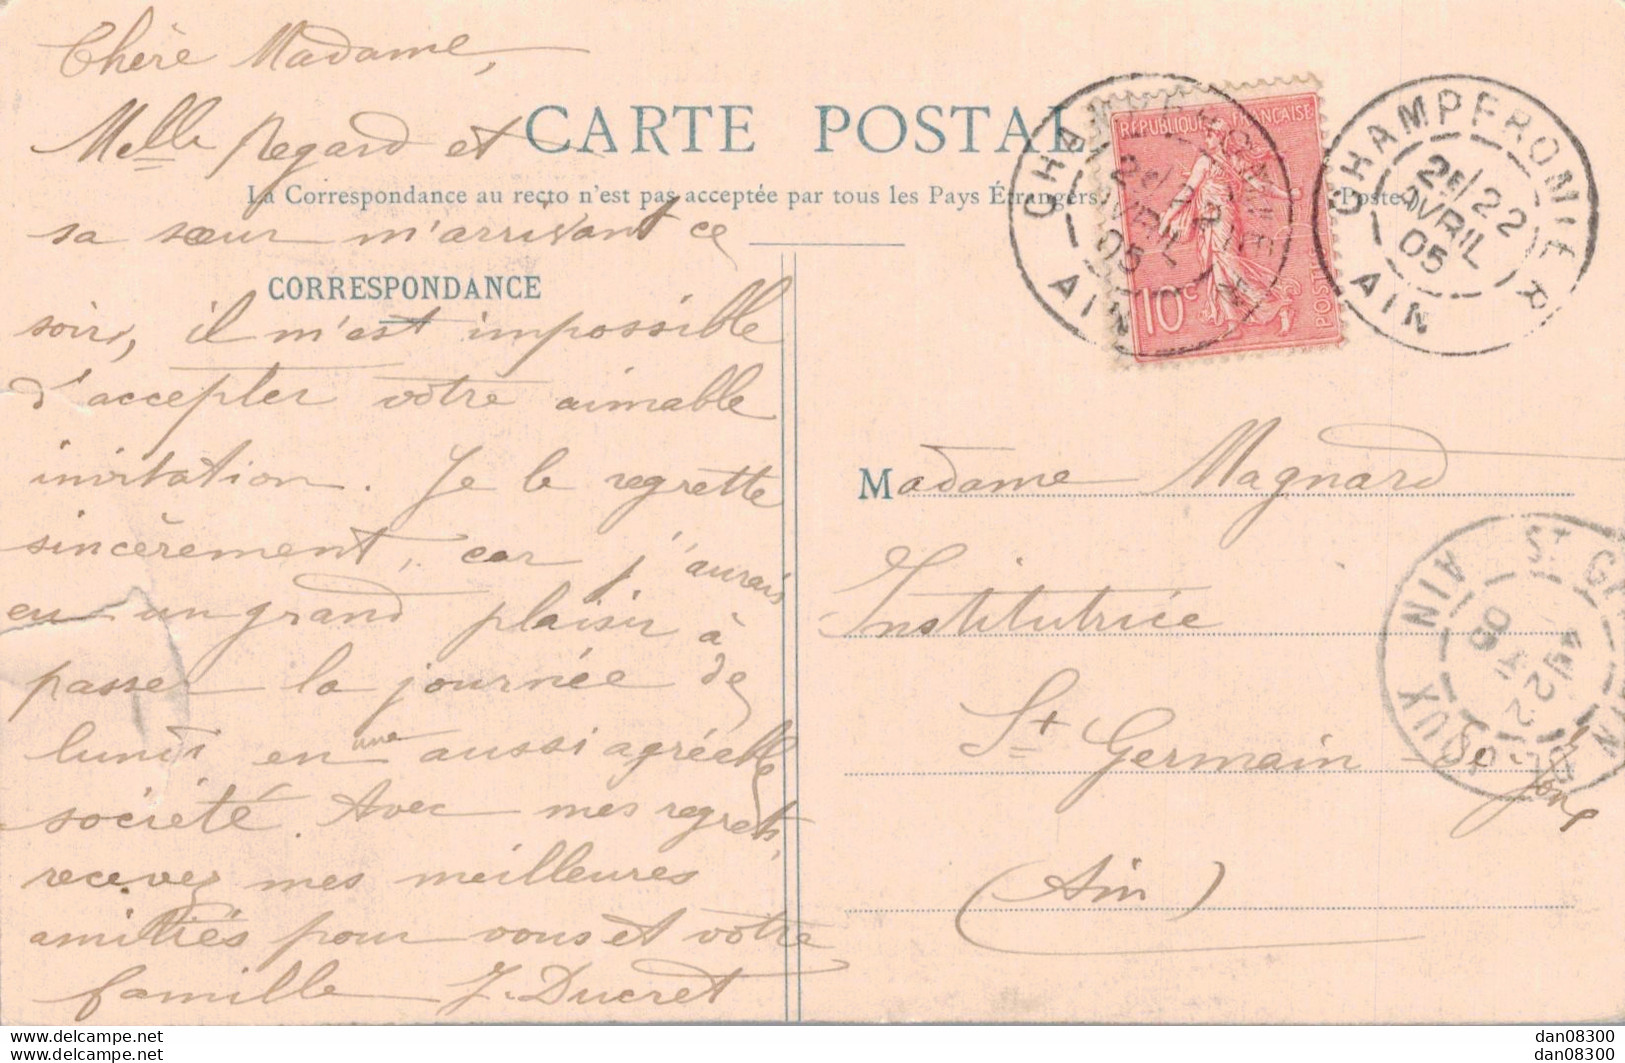 Chère Madame,
Melle Regard et
CARTE POSTALE
La Correspondance au recto n'est pas acceptée par tous les Pays Étrangers
Postes
sa sœur m'arrivant ce
CORRESPONDANCE
soir, il m'est impossible
d'accepter votre aimable
invitation. Je le regrette
sincèrement, car j'aurais
eu un grand plaisir à
passer la journée de
lundi en une aussi agréable
société. Avec mes regrets,
recevez mes meilleures
amitiés pour vous et votre
famille J. Ducret
REPUBLIQUE FRANÇAISE
POSTES
10c
CHAMPFROMIER
2E/22
AVRIL
05
AIN
CHAMPFROMIER
2E/22
AVRIL
05
AIN
Madame Magnard
Institutrice
St Germain de Joux
(Ain)
AIN
dan08300
dan08300
http://www.delcampe.net
http://www.delcampe.net